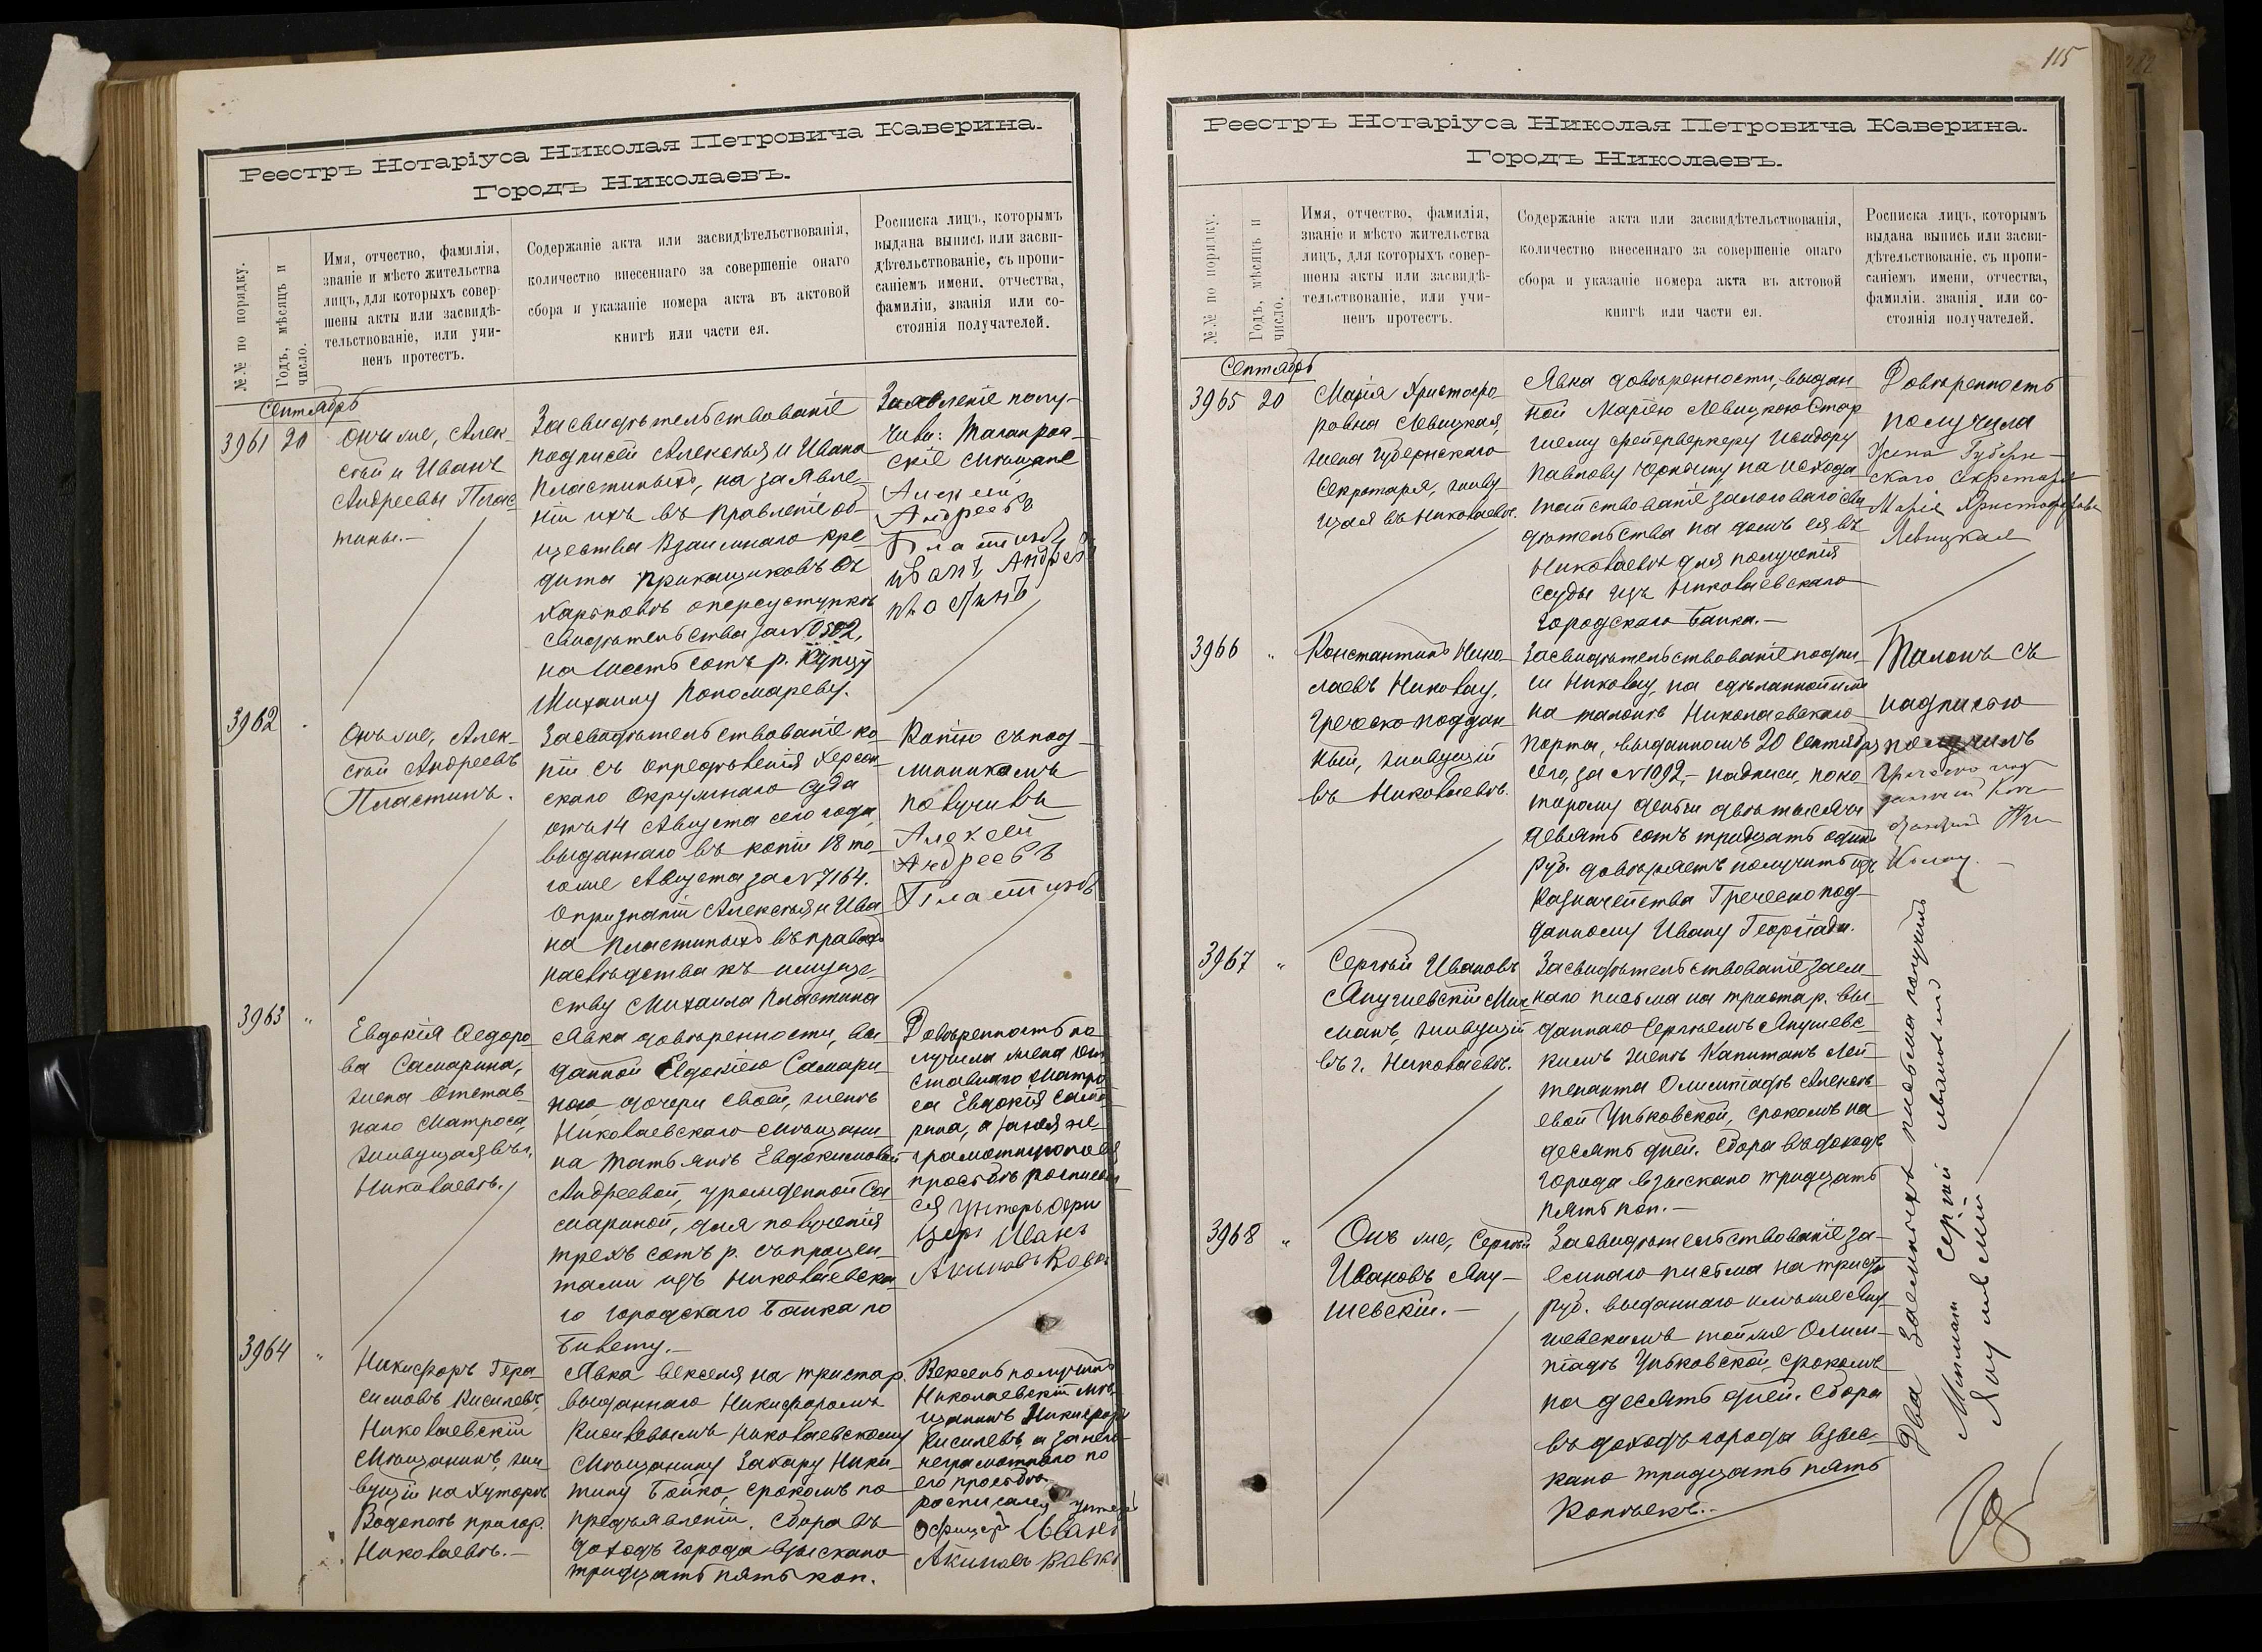 Реестръ Нотаріуса Николая Петровича Каверина.
Городъ Николаевъ.
№№ по порядку.
Годъ, мѣсяцъ и
число.
Имя, отчество, фамилія,
званіе и мѣсто жительства
лицъ, для которыхъ совер-
шены акты или засвидѣ-
тельствованіе, или учи-
ненъ протестъ.
Содержаніе акта или засвидѣтельствованія,
количество внесеннаго за совершеніе онаго
сбора и указаніе номера акта въ актовой
книгѣ или части ея.
Росписка лицъ, которымъ
выдана выпись или засви-
дѣтельствованіе, съ пропи-
саніемъ имени, отчества,
фамиліи, званія или со-
стоянія получателей.
Сентябрь
3961 20
Они же, Алек-
сѣй и Иванъ
Андреевы Плас-
тины.-
Засвидѣтельствованіе
подписей Алексѣя и Ивана
Пластиныхъ, на заявле-
ніи ихъ въ Правленіе об-
щества Взаимнаго кре-
дита Прикащиковъ въ
Харьковѣ о переуступкѣ
свидѣтельства за №0502,
на шесть сотъ р. Купцу
Михаилу Пономареву.
Заявленіе полу-
чили: Таганрог-
скіе мѣщане
Алексей
Андреевъ
Пластинъ
Иванъ Андрей
Пластинъ
3962
Онъ же, Алек-
сѣй Андреевъ
Пластинъ.
Засвидѣтельствованіе ко-
піи съ опредѣленія Херсон-
скаго Окружнаго Суда
отъ 14 Августа сего года
выданнаго въ копіи 18 то-
гоже Августа за №7164.
О признаніи Алексѣя и Ива
на Пластиныхъ въ правахъ
наслѣдства къ имуще-
ству Михаила Пластина
Копію съ под-
линникомъ
получилъ
Алексей
Андреевъ
Пластинъ
3963 "
Евдокія Ѳедоро
ва Самарина,
жена Отстав-
наго Матроса,
живущая въ г.
Николаевѣ.
Явка довѣренности, вы-
данной Евдокіею Самари-
ною, дочери своей, женѣ
Николаевскаго мѣщани-
на Татьянѣ Евдокимовой
Андреевой, урожденной Са-
мариной, для полученія
трехъ сотъ р. съ процен-
тами изъ Николаевска-
го Городскаго Банка по
билету.-
Довѣренность по-
лучила жена От
ставнаго Матро
са Евдокія Сама
рина, а за нея не-
грамотную по ея
просьбѣ росписал
ся Унтеръ Офи
церъ Иванъ
Акимовъ
3964 "
Никифоръ Гера-
симовъ Киселевъ,
Николаевскій
Мѣщанинъ, жи
вущій на Хуторѣ
Водопой пригор.
Николаевѣ.-
Явка векселя на триста р.
выданнаго Никифоромъ
Киселевымъ Николаевскому
Мѣщанину Захару Ники-
тину Бойко, срокомъ по
предъявленіи. Сбора въ
доходъ города взыскано
тридцать пять коп.
Вексель получилъ
Николаевскій мѣ-
щанинъ Никифоръ
Киселевъ, а за него
неграмотнаго по
его просьбѣ
росписался унтеръ
офицеръ Иванъ
Акимовъ
115
Реестръ Нотаріуса Николая Петровича Каверина.
Городъ Николаевъ.
№№ по порядку.
Годъ, мѣсяцъ и
число.
Имя, отчество, фамилія,
званіе и мѣсто жительства
лицъ, для которыхъ совер-
шены акты или засвидѣ-
тельствованіе, или учи-
ненъ протестъ.
Содержаніе акта или засвидѣтельствованія,
количество внесеннаго за совершеніе онаго
сбора и указаніе номера акта въ актовой
книгѣ или части ея.
Росписка лицъ, которымъ
выдана выпись или засви-
дѣтельствованіе, съ пропи-
саніемъ имени, отчества,
фамиліи. званія или со-
стоянія получателей.
Сентябрь
3965 20
Марія Христофо
ровна Левицкая,
жена Губернскаго
Секретаря, живу
щая въ Николаевѣ.
Явка довѣренности, выдан-
ной Маріею Левицкою Стар
шему фейерверкеру Исидору
Павлову на исхода
тайствованіе залоговаго сви
дѣтельства на домъ ея въ
Николаевѣ для полученія
ссуды изъ Николаевскаго
Городскаго Банка.-
Довѣренность
получила
Жена Губерн-
скаго Секретаря
Марія Христофорова
Левицкая
3966 "
Константинъ Нико-
лаевъ Николау,
Греческо-поддан
ный, живущій
въ Николаевѣ.
Засвидѣтельствованіе подпи-
си Николау, на сдѣланной имъ
на талонѣ Николаевскаго
Порта, выданномъ 20 Сентября
сего, за №1092,- надписи, по ко
торому деньги двѣ тысячи
девять сотъ тридцать одинъ
руб. довѣряетъ получить изъ
Казначейства Греческо под-
данному Ивану Георгіади.
Талонъ съ
надписью
получилъ
Греческо под
данный Кон-
Ни-
колау.-
3967 "
Сергѣй Ивановъ
Янушевскій Мич
манъ, живущій
въ г. Николаевѣ.
Засвидѣтельствованіе заем-
наго письма на триста р. вы-
даннаго Сергѣемъ Янушевс-
кимъ женѣ Капитанъ Лей-
тенанта Олимпіадѣ Алексѣ-
евой Ульковской, срокомъ на
десять дней. Сбора въ доходъ
города взыскано тридцать
пять коп.-
3968 "
Онъ же, Сергѣй
Ивановъ Яну-
шевскій.-
Засвидѣтельствованіе за-
емнаго письма на триста
руб. выданнаго имъ же Яну-
шевскимъ той же Олим-
піадѣ Ульковской, срокомъ
на десять дней. Сбора
въ доходъ города взыс-
кано тридцать пять
копѣекъ.-
Два заемныхъ письма получилъ
Мичманъ Сергѣй Ивановичъ
Янушевскій